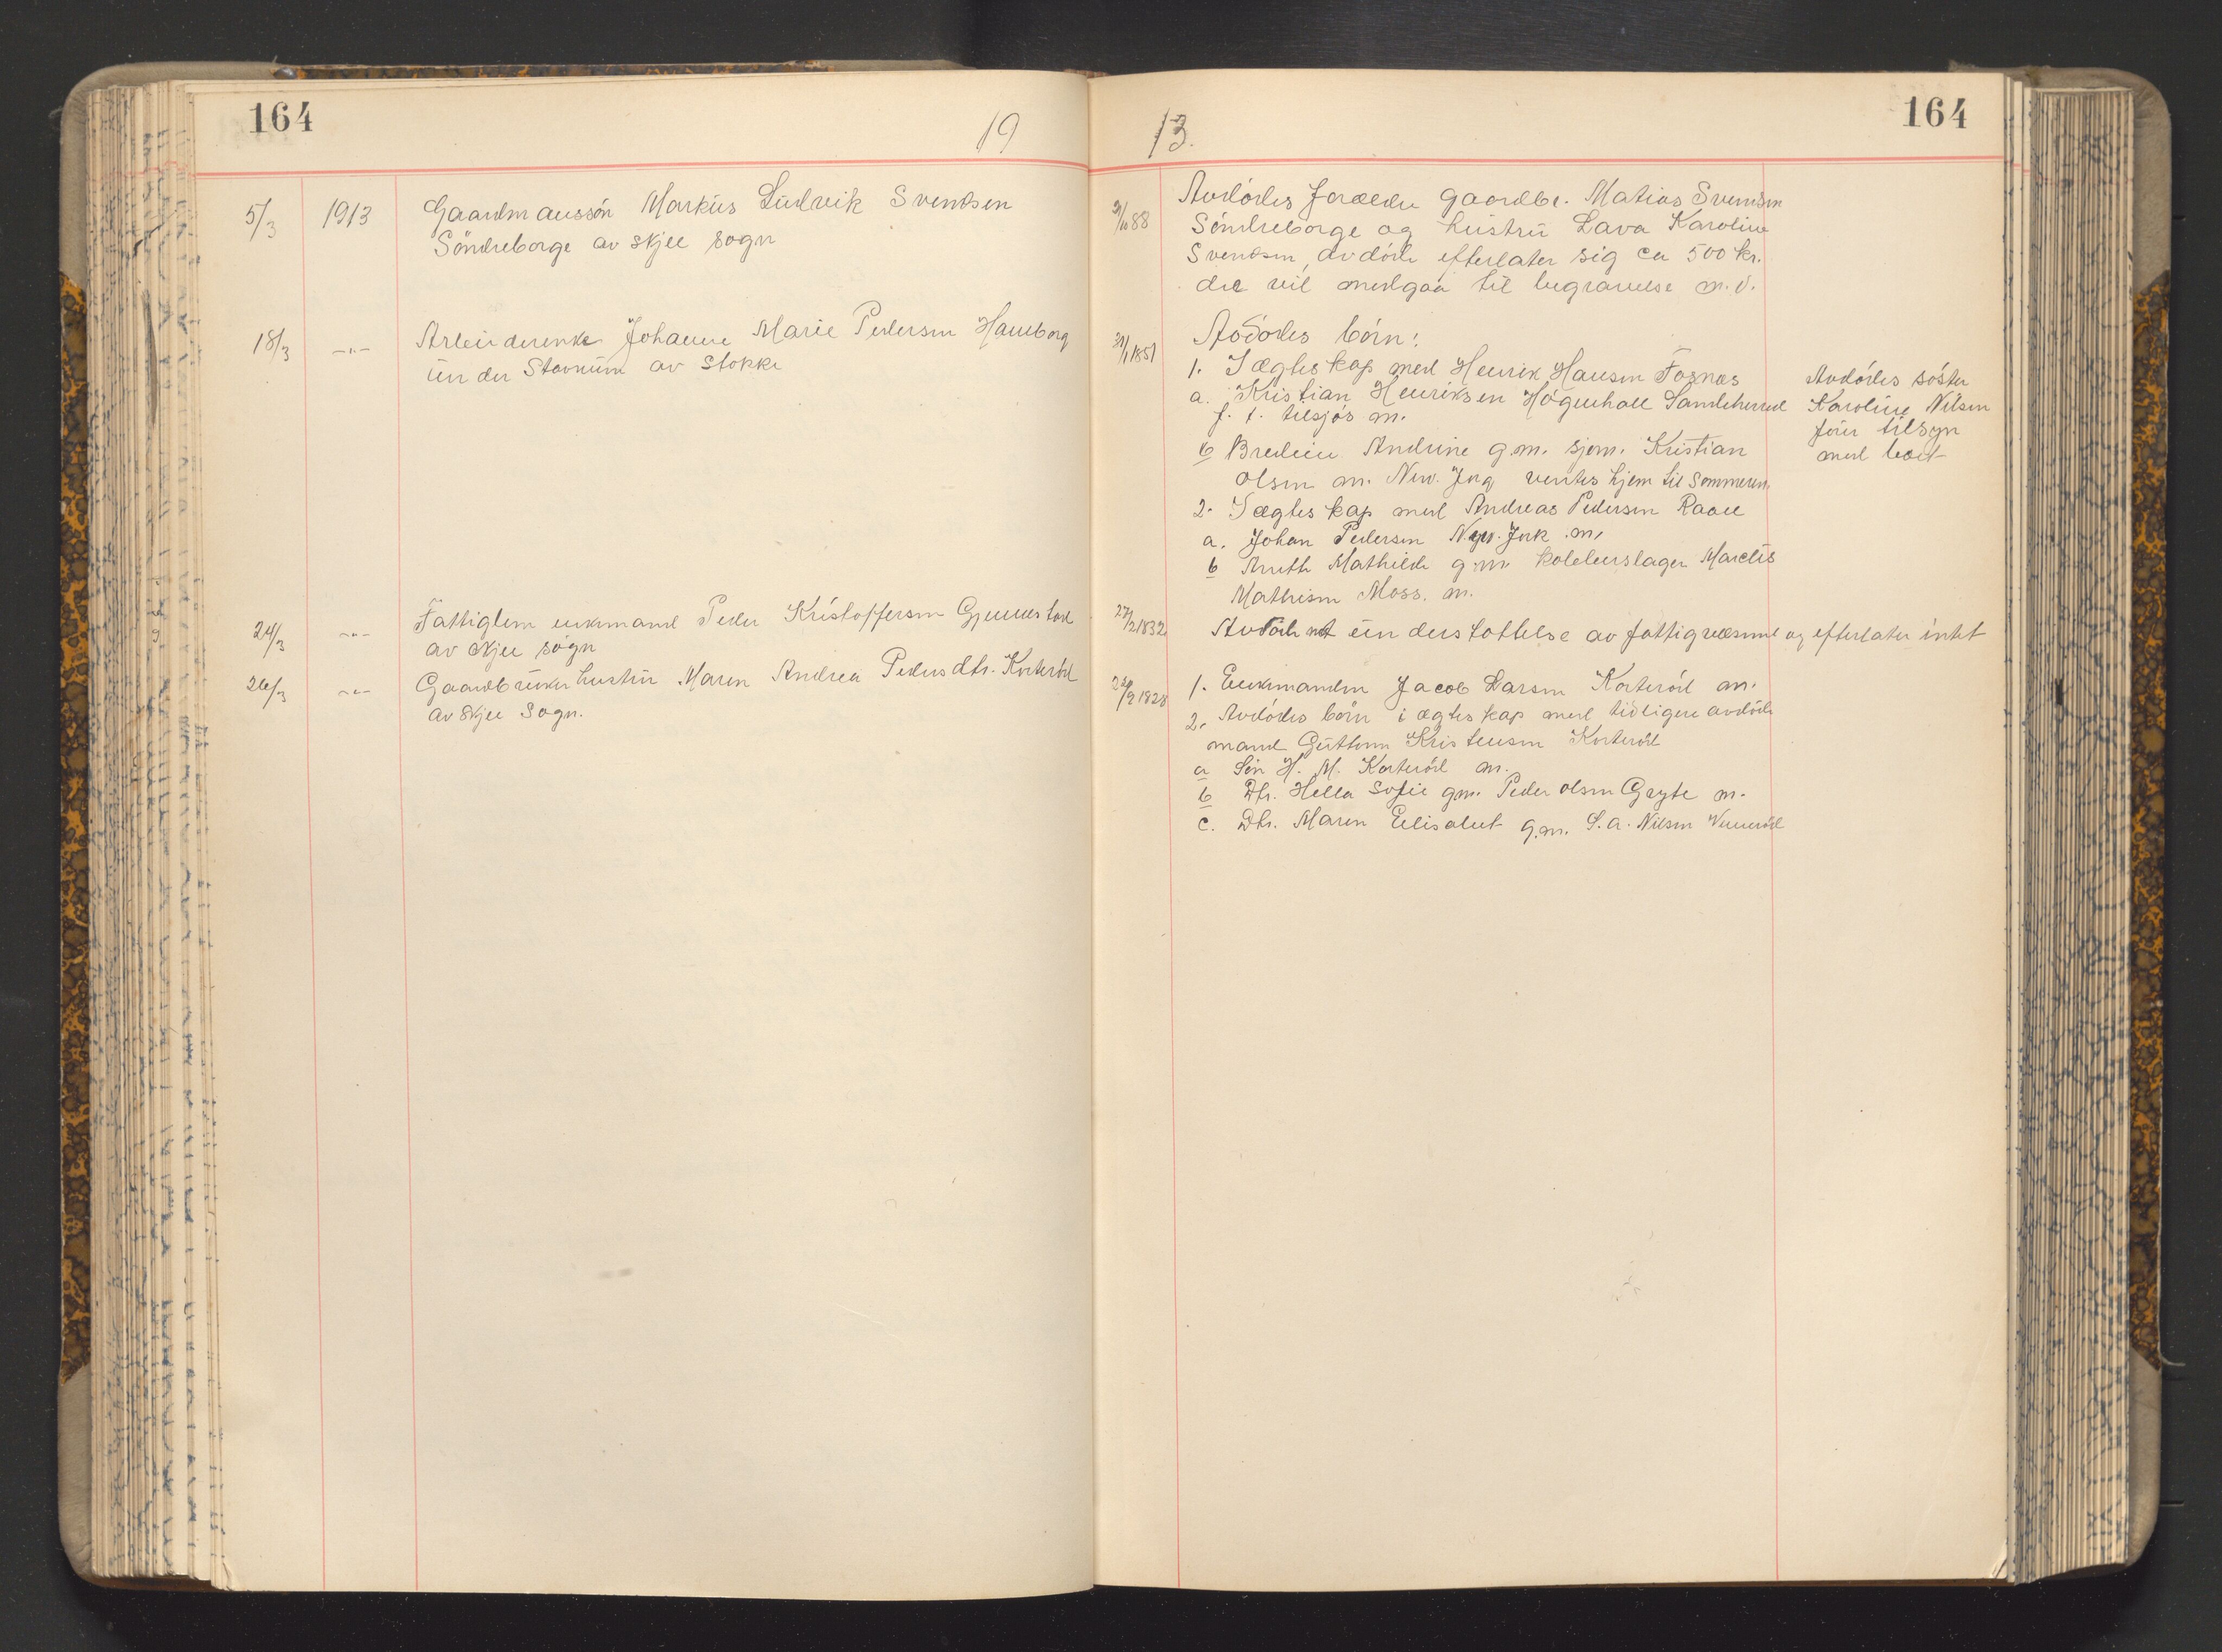 164
19
13.
164
5/3 1913 Gaardmanssön Markus Ludvik Svendsen
Söndreborge av Skjee sogn
9/10 88 Avdödes forældre gaardbr. Matias Svendsen
Söndreborge og hustru Lava Karoline
Svendsen, avdöde efterlater sig ca 500 kr.
der vil medgaa til begravelse m.v.
18/3 -"- Arbeiderenke Johanne Marie Pedersen Hauborg
under Stavnum av Stokke
31/1 1851 Avdödes börn:
1. I ægteskap med Henrik Hansen Fosnæs
a. Kristian Henriksen Högenhall Sandeherred
f. t. tilsjös m.
b Andrine g.m. sjøm. Kristian
Olsen m. New. Jorg ventes hjem til Sommeren
2. I ægteskap med Andreas Pedersen Raae
a. Johan Pedersen New. Jork m.
b Anette Mathilde g.m. kobberslager Marelis
Mathisen Moss. m.
Avdödes söster
Karoline Nilsen
förer tilsyn
med boet
24/3 -"- Fattiglem enkemand Peder Kristoffersen Gjennestad
av Skjee sogn
27/2 1832 Avdöde nöt understöttelse av fattigvæsenet og efterlater intet
26/3 -"- Gaardbruker hustru Maren Andrea Pedersdtr. Korteröd
av Skjee Sogn.
22/9 1828 1. Enkemanden Jacob Larsen Korteröd m.
2. Avdödes börn i ægteskap med tidligere avdöde
mand Guttorm Kristensen Korteröd
a Sön H. M. Korteröd m.
b Dtr. Hella Sofie gm. Peder Olsen Gryte m.
c. Dtr. Maren Elisabet g.m. S. A. Nilsen